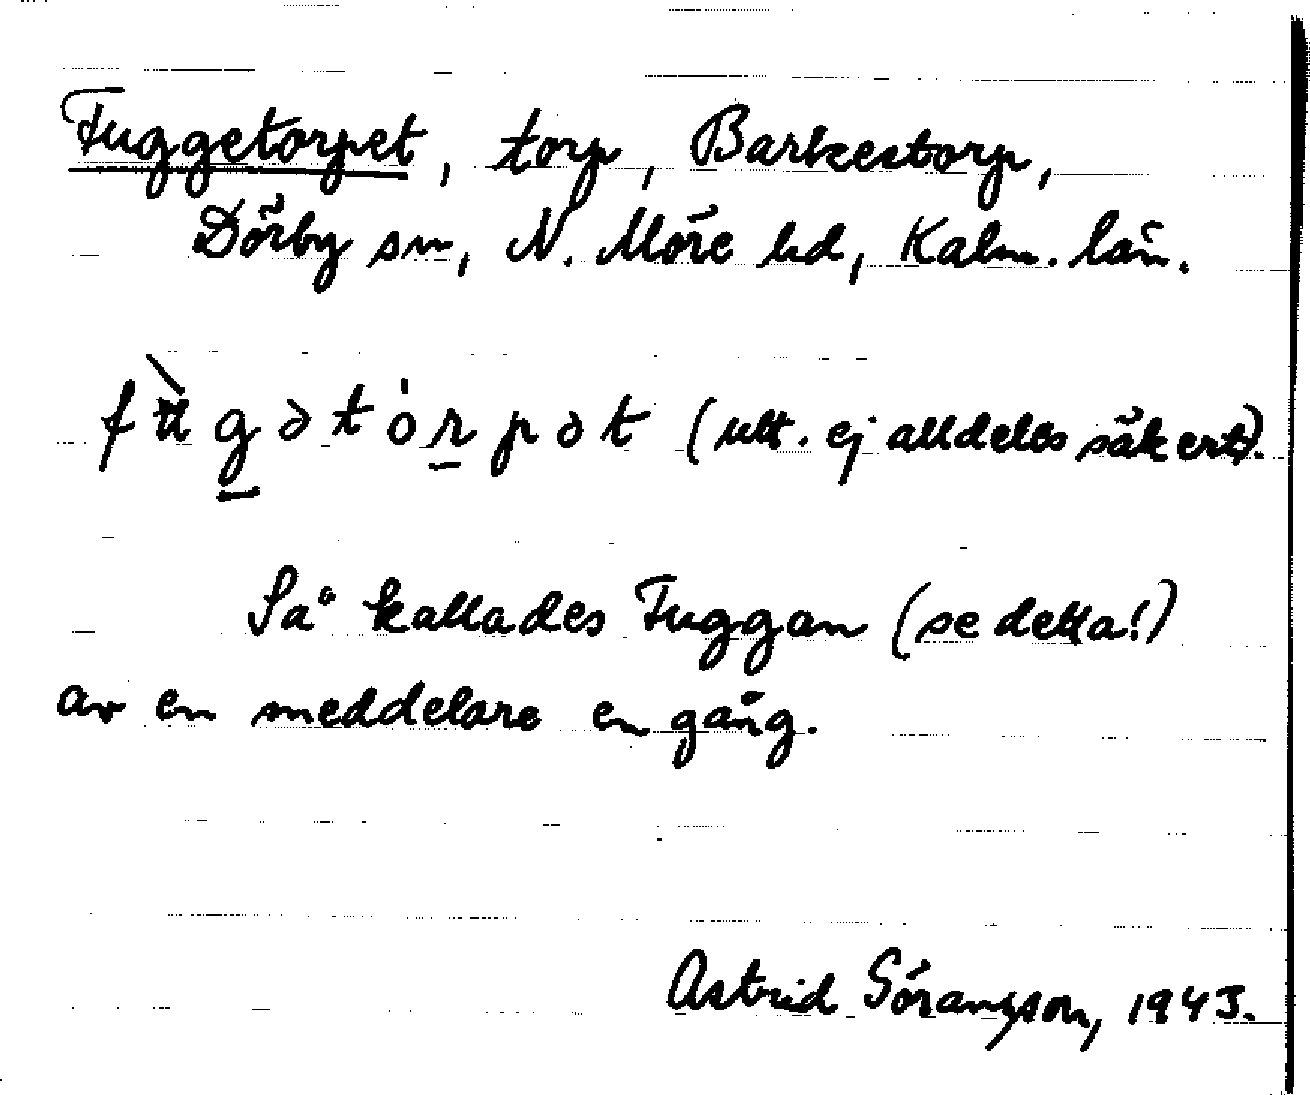 Fuggetorpet, torp, Barkestorp,
Dörby sn, N. Möre hd, Kalm. län.
fùgətórpət (utt. ej alldeles säkert).
Så kallades Fuggan (se detta!)
av en meddelare en gång.
Astrid Göransson, 1943.